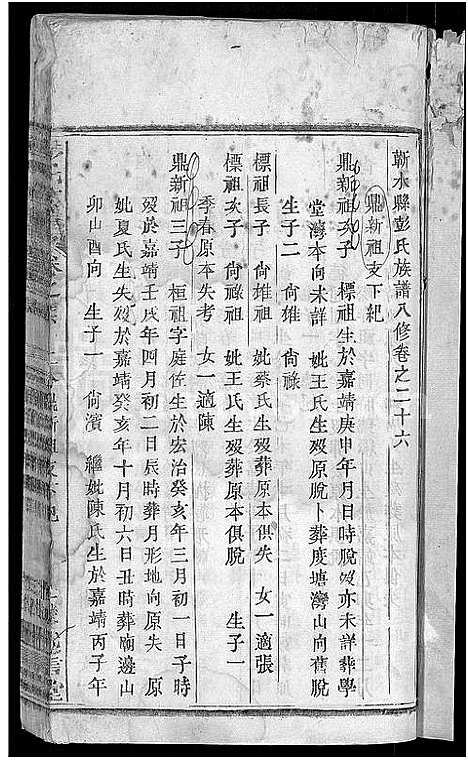 蘄水縣彭氏族譜八修卷之二十六
鼎新祖支下紀
鼎新祖次子　標祖生於嘉靖庚申年月日時脫歿亦未詳葬學
堂灣本向未詳　妣王氏生歿原脫卜葬庋塘灣山向舊脫
生子二　尙雄　尙祿
標祖長子　尙雄祖　妣蔡氏生歿葬原本俱失　女一適張
標祖次子　尙祿祖　妣王氏生歿葬原本俱脫　生子一
季春原本失考　女一適陳
鼎新祖三子　桓祖字庭佐生於宏治癸亥年三月初一日子時
歿於嘉靖壬戌年四月初二日辰時葬月形地向原失　原
妣夏氏生失歿於嘉靖癸亥年十月初六日丑時葬廟邊山
卯山酉向　生子一　尙濱　繼妣陳氏生於嘉靖丙子年